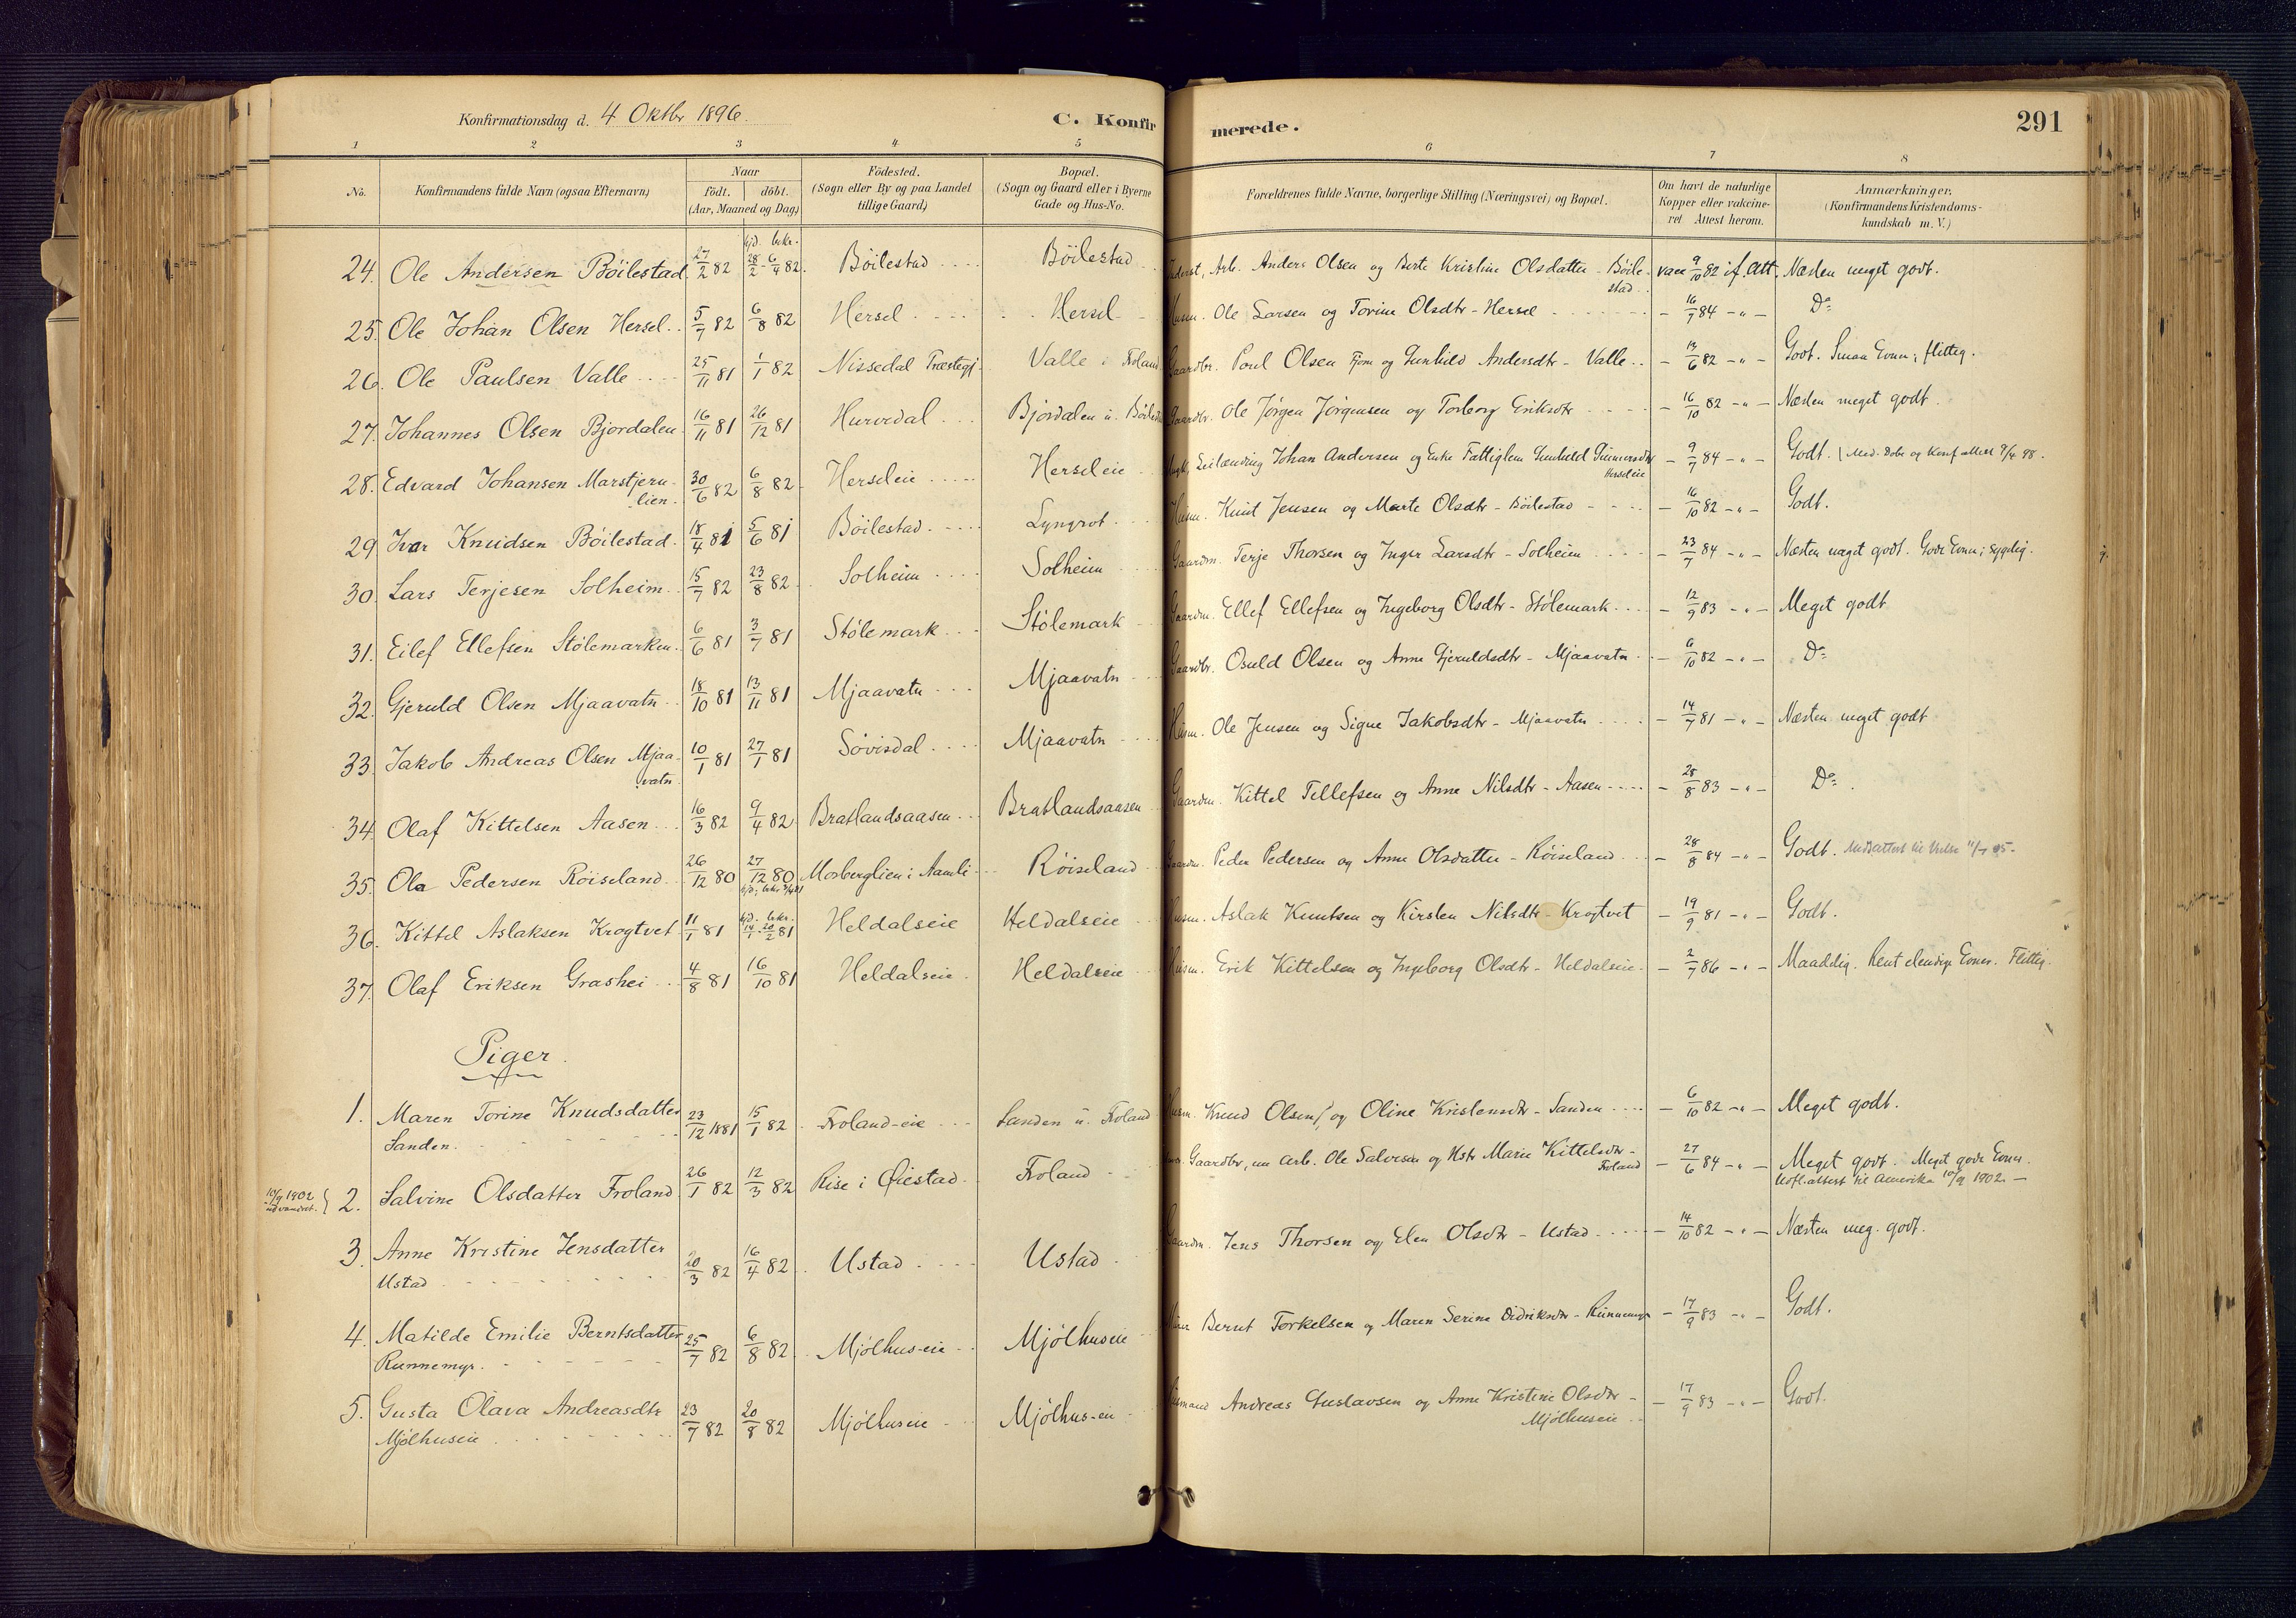 Konfirmationsdag d. 4 Oktbr 1896. C. Konfirmerede. 291
1 2 3 4 5 6 7 8
No. Konfirmandens fulde Navn (ogsaa Efternavn) Naar født. døbt. (Aar, Maaned og Dag) Fødested. (Sogn eller By og paa Landet tillige Gaard) Bopæl. (Sogn og Gaard eller i Byerne Gade og Hus-No. Forældrenes fulde Navne, borgerlige Stilling (Næringsvei) og Bopæl. Om havt de naturlige Kopper eller vakcineret Attest herom. Anmærkninger. (Konfirmandens Kristendomskundskab m. V.)
24. Ole Andersen Böilestad 27/2 82 hjd. 28/2 - bekr. 6/4 82. Böilestad Böilestad Arb. Anders Olsen og Berte Kristine Olsdatter - Böilestad vacc 9/10 82 if. Att. Næsten meget godt.
25. Ole Johan Olsen Hersel 5/7 82 6/8 82 Hersel Hersel Husm. Ole Larsen og Torine Olsdtr - Hersel - 16/7 84 - " - Do
26. Ole Paulsen Valle 25/11 81 1/1 82 Nissedal Præstegj. Valle i Froland Gaardbr. Poul Olsen og Gunhild Andersdtr - Valle - 13/6 82 - " - Godt. Smaa Evner; flittig.
27. Johannes Olsen Bjordalen 16/11 81 26/12 81 Hurvedal Bjordalen u. Böilestad Gaardbr. Ole Jørgen Jørgensen og Torborg Eriksdtr - 16/10 82 - " - Næsten meget godt.
28. Edvard Johansen Marstjernlien. 30/6 82 6/8 82 Herseleie Herseleie Leilænding Johan Andersen og Enke Fattiglem Gunhild Gunnersdtr Herseleie - 9/7 84 - " - Godt.
29. Ivar Knudsen Böilestad 18/4 81 5/6 81 Böilestad Lyngrot Husm. Knut Jensen og Marte Olsdtr - Böilestad - 16/10 82 - " - Godt.
30. Lars Terjesen Solheim 15/7 82 23/8 82 Solheim Solheim Gaardm. Terje Thorsen og Inger Larsdtr - Solheim - 23/7 84 - " - Næsten meget godt. Gode Evner; sygelig.
31. Eilef Ellefsen Stölemarken 6/6 81 3/7 81 Stölemark Stölemark Gaardm. Ellef Ellefsen og Ingeborg Olsdtr - Stölemark - 12/9 83 - " - Meget godt
32. Gjeruld Olsen Mjaavatn 18/10 81 13/11 81 Mjaavatn Mjaavatn Gaardbr. Osuld Olsen og Anne Gjeruldsdtr - Mjaavatn - 6/10 82 - " - Do
33. Jakob Andreas Olsen Mjaavatn 10/1 81 27/1 81 Sövisdal Mjaavatn Husm. Ole Jensen og Signe Jakobsdtr - Mjaavatn - 14/7 81 - " - Næsten meget godt
34. Olaf Kittelsen Aasen 16/3 82 9/4 82 Bratlandsaasen Bratlandsaasen Gaardm. Kittel Tellefsen og Anne Nilsdtr - Aasen - 28/8 83 - " - Do
35. Ola Pedersen Röiseland 26/12 80 27/12 80 Mosberglien i Aamli Röiseland Gaardm. Peder Pedersen og Anne Olsdatter - Röiseland - 28/8 84 - " - Godt.
36. Kittel Aslaksen Krogtvet 11/1 81 hjd. 14/1 - bekr. 20/2 81 Heldalseie Heldalseie Husm. Aslak Knutsen og Kirsten Nilsdtr - Krogtvet - 19/9 81 - " - Godt.
37. Olaf Eriksen Grashei 4/8 81 16/10 81 Heldalseie Heldalseie Husm. Erik Kittelsen og Ingeborg Olsdtr - Heldalseie - 2/7 86 - " - Maadelig. Rent elendige Evner. Flittig.
Piger.
1. Maren Torine Knudsdatter Sanden. 23/12 1881 15/1 82 Froland-eie Sanden u. Froland Husm. Knud Olsen og Oline Kristensdtr - Sanden - 6/10 82 - " - Meget godt.
10/9 1902 udvandret. 2. Salvine Olsdatter Froland 26/1 82 12/3 82 Rise i Øiestad Froland Gaardbr, nu Arb. Ole Salvesen og Hstr Marie Kittelsdtr - Froland - 27/6 84 - " - Meget godt. Meget gode Evner. Udfl.attest til Amerika 10/9 1902 -
3. Anne Kristine Jensdatter Ustad 20/3 82 16/4 82 Ustad Ustad Gaardm. Jens Thorsen og Elen Olsdtr - Ustad - 14/10 82 - " - Næsten meg. godt.
4. Matilde Emilie Berntsdatter Runnemyr. 25/7 82 6/8 82 Mjölhus-eie Mjölhuseie Bernt Torkelsen og Maren Serine Didriksdtr - Runnemyr - 17/9 83 - " - Godt.
5. Gusta Olava Andreasdtr Mjölhuseie 23/7 82 20/8 82 Mjölhuseie Mjölhus-eie Husmand Andreas Gustavsen og Anne Kristine Olsdtr - Mjölhuseie - 17/9 83 - " - Godt.